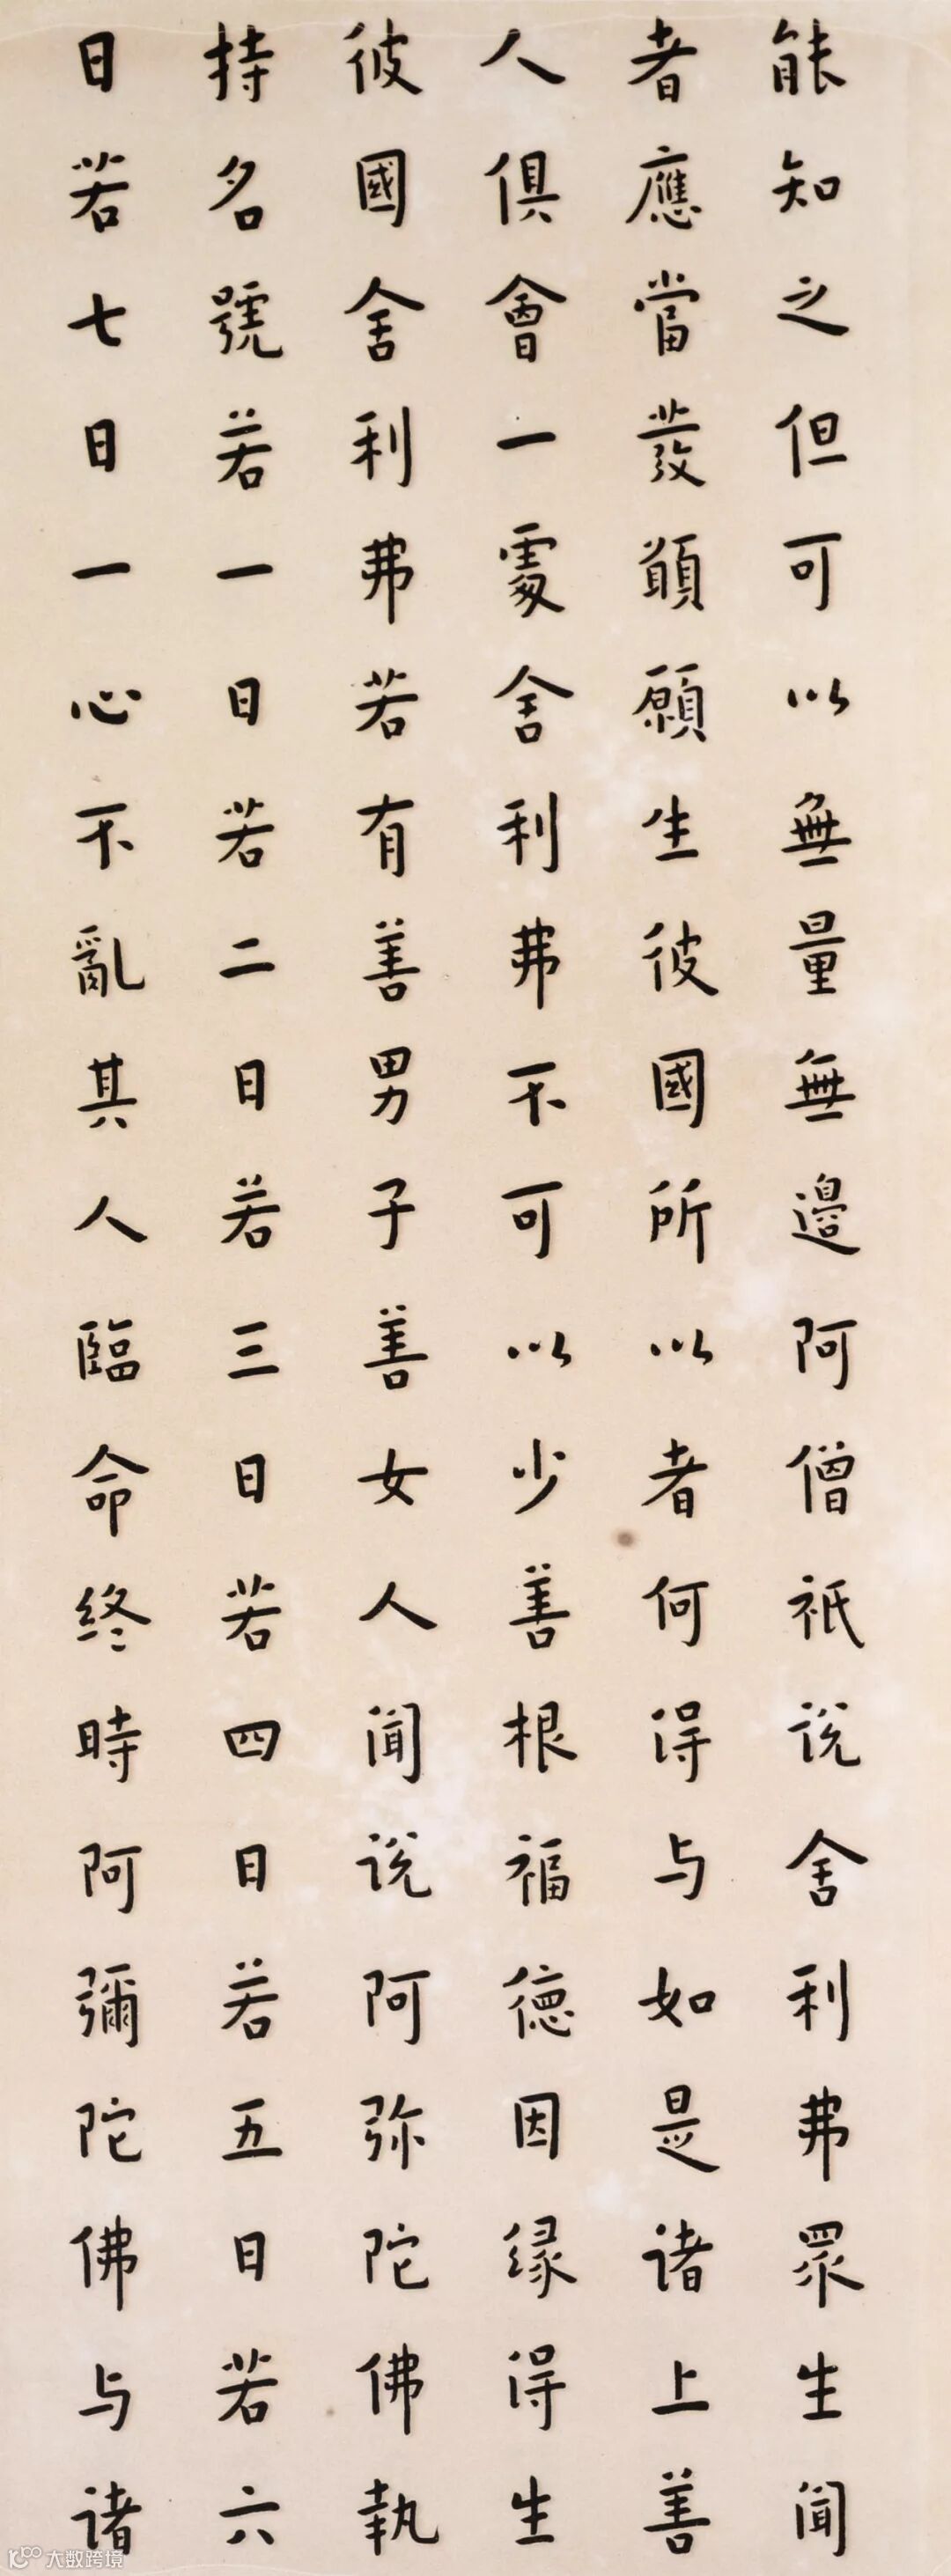 能知之但可以無量無邊阿僧祇说舍利弗眾生闻
者應當發願願生彼國所以者何得与如是诸上善
人俱會一處舍利弗不可以少善根福德因缘得生
彼國舍利弗若有善男子善女人闻说阿弥陀佛執
持名號若一日若二日若三日若四日若五日若六
日若七日一心不亂其人臨命终時阿彌陀佛与诸
大数跨境